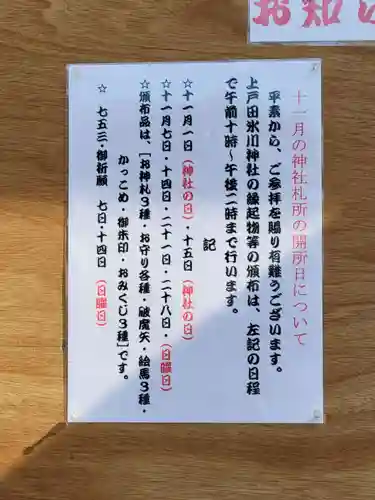 お知ら
十一月の神社札所の開所日について
平素から、ご参拝を賜り有難うございます。
上戸田氷川神社の縁起物等の頒布は、左記の日程
で午前十時～午後二時まで行います。
記
☆十一月一日（神社の日）・十五日（神社の日）
☆十一月七日・十四日・二十一日・二十八日・（日曜日）
☆頒布品は、［お神札３種・お守り各種・破魔矢・絵馬３種・
かっこめ・御朱印・おみくじ３種］です。
☆　七五三・御祈願　七日・十四日　（日曜日）